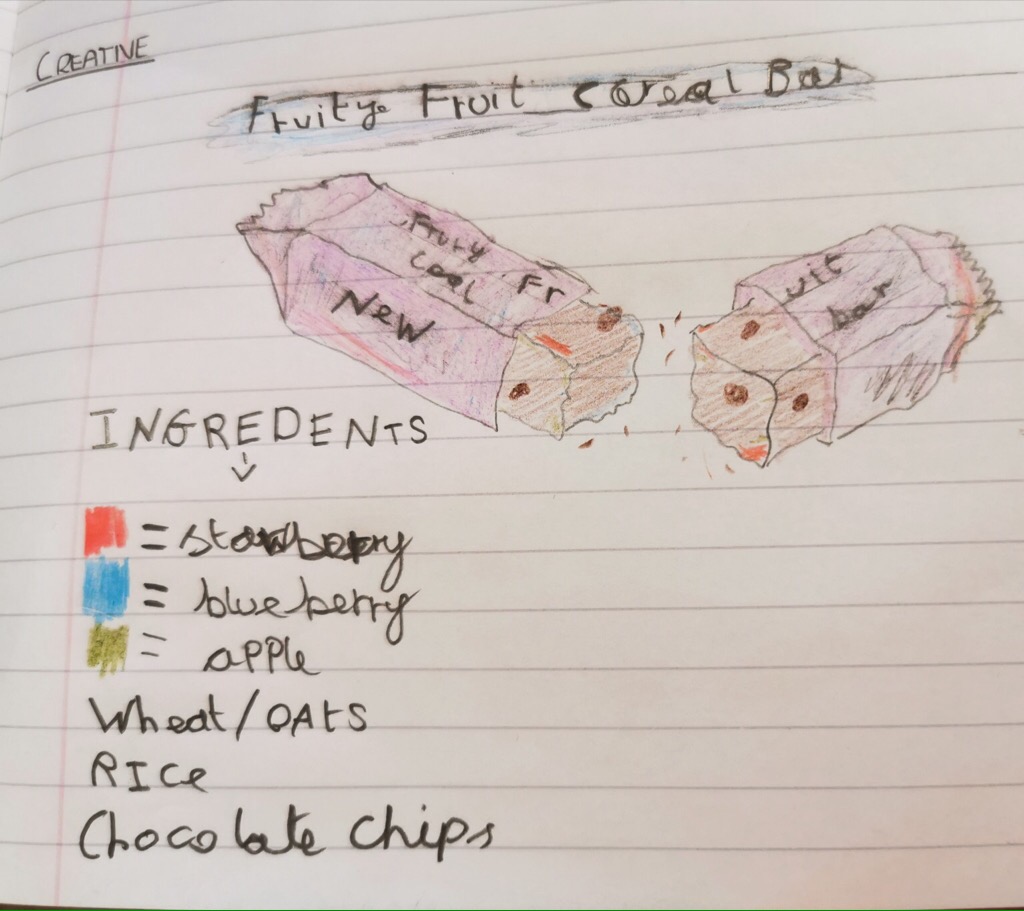 CREATIVE
Fruitye Fruit cereal Bar
Frury
cael Fr
New
uit
bar
INGREDENTS
= stawberry
= blueberry
= apple
Wheat/OATS
RICe
Chocolate chips